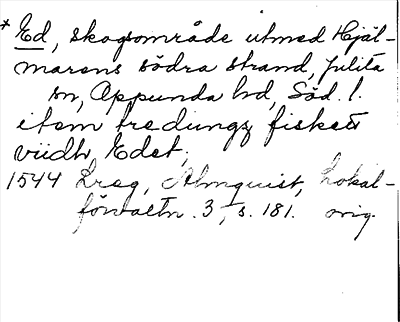 * Ed, skogsområde utmed Hjäl-
marens södra strand, Julita
sn, Oppunda hd, Söd. l.
item tredungz fiskett
viidh Edet;
1544 Lreg, Almquist, Lokal-
förvaltn. 3, s. 181. orig.